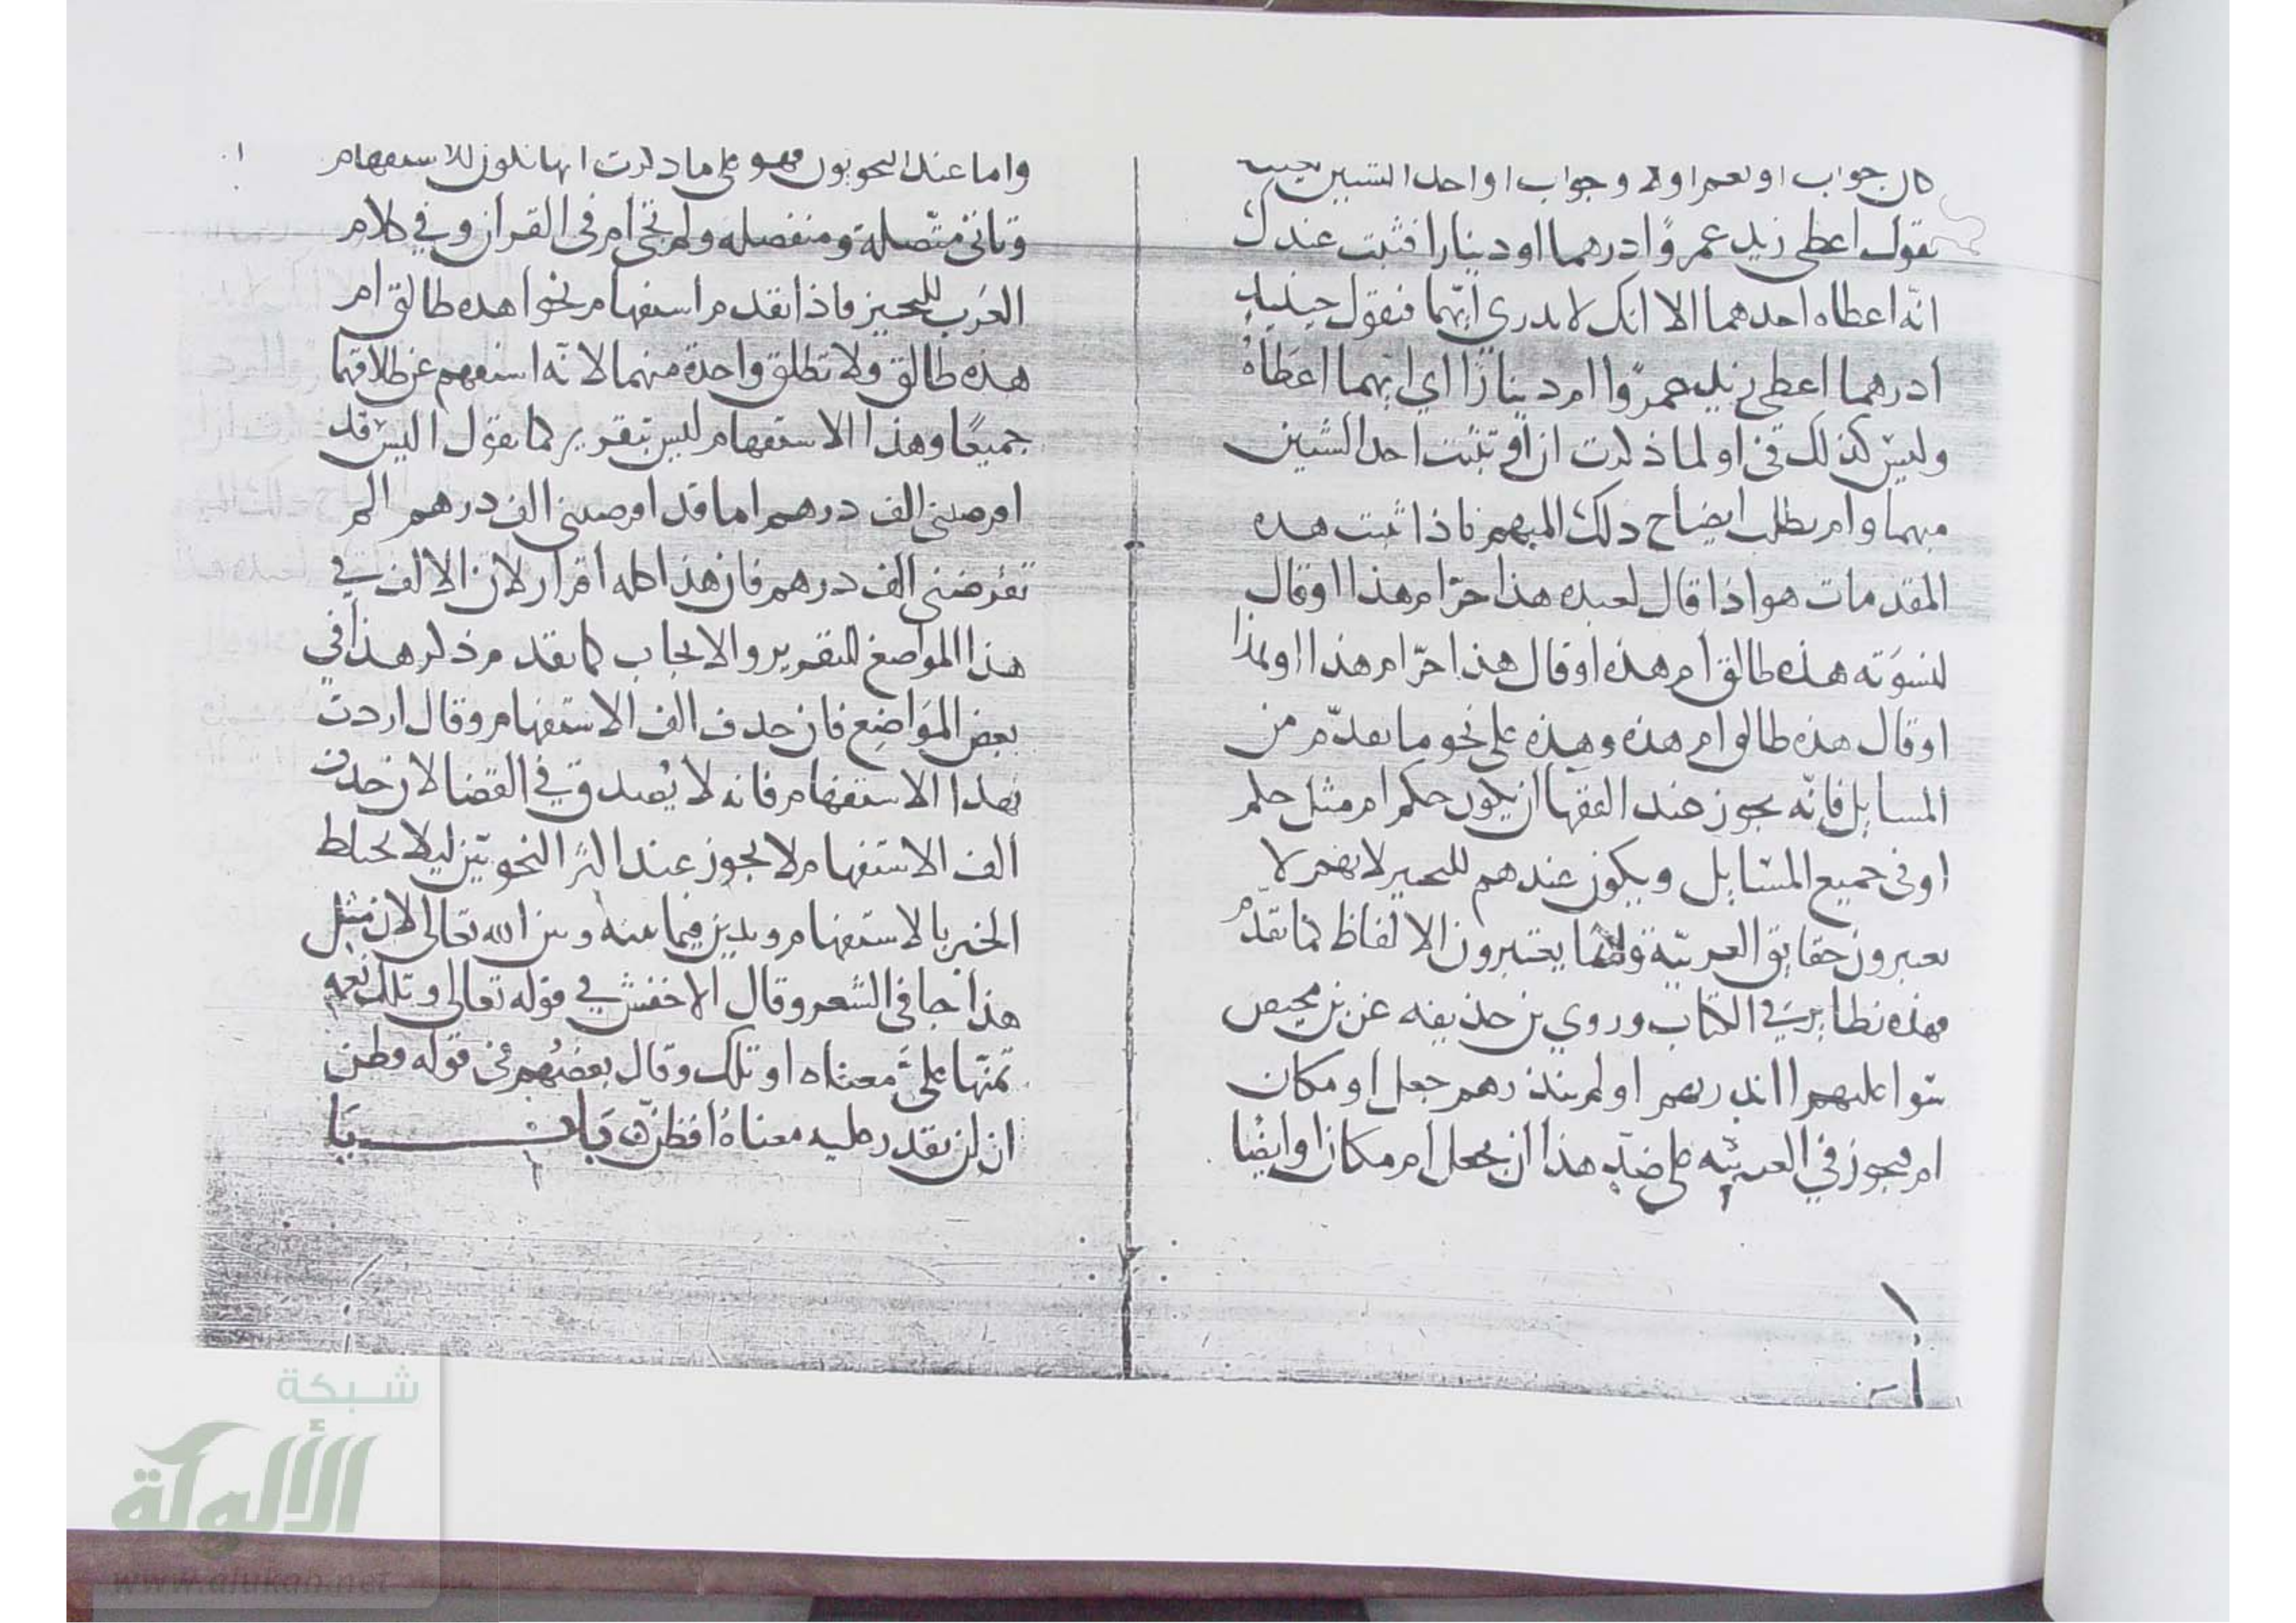 كان جواب او نعم او لا وجواب ام احد الشيين
تقول اعطى زيد عمروًا درهما او دينارا فثبت عندك
انّه اعطاه احدهما الا انك لا تدري ايّهما فتقول حينيذٍ
ادرهما اعطى زيد عمرًوا ام دينارًا اي ايهما اعطاهُ
وليس كذلك في او لما ذكرت ان او تثبت احد الشيين
مبهما وام يطلب ايضاح ذلك المبهم فاذا ثبت هده
المقدمات هو اذا قال لعبده هذا حرّ ام هذا او قال
لنسوَته هذه طالق ام هذه او قال هذا حرّ ام هذا او هذا
او قال هذه طالق ام هذه وهذه على نحو ما تقدّم من
المسايل فإنّه يجوز عند الفقها ان يكون حكم ام مثل حكم
او في جميع المسَايل ويكون عندهم للتخيير لانهم لا
يعتبرون حقايق العربيّة وانما يعتبرون الالفاظ كما تقدّم
فهذه نظاير في الكتاب وروي بن حذيفه عن بن محيصن
سوا عليهم اانذرتهم او لم تنذرهم جعل او مكان
ام فيجوز في العربيّه على ضدّ هذا ان يجعل ام مكان او ايضًا
واما عند النحويون فهو على ما ذكرت انها تكون للاستفهام
وتاتي متّصلة ومنفصله ولم تجئ ام في القران وفي كلام
العَرب للتخيير فاذا تقدم استفهام نحو اهده طالق ام
هذه طالق ولا تطلق واحدة منهما لانّه استفهم عن طلاقهما
جميعًا وهذا الاستفهام ليس بتقرير كما تقول اليسَ قد
اقرضتني الف درهم اما قد اقرضتني الف درهم الم
تقرضني الف درهم فان هذا كله اقرار لان الالف في
هذا المواضع للتقرير والايجاب كما تقدم ذكر هذا في
بعض المَواضِع فان حدف الف الاستفهام وقال اردت
بهدا الاستفهام فانه لا يُصدق في القضا لان حدف
ألف الاستفهام لا يجوز عند اكثر النحويّين ليلا يختلط
الخبر بالاستفهام ويدين فيما بينه وبين الله تعالى لان مثل
هذا جا في الشعر وقال الاخفش في قوله تعالى وتلك نعمه
تمنّها عليَّ معناه او تلك وقال بعضهُم في قوله فظن
ان لن نقدر عليه معناهُ افظنّ